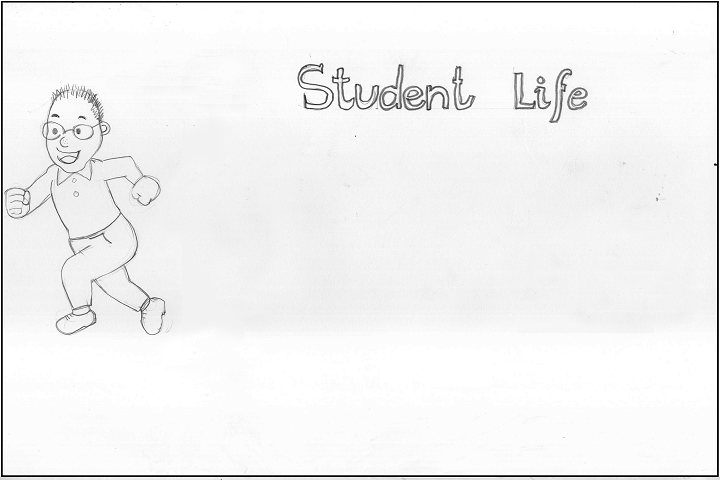 Student Life